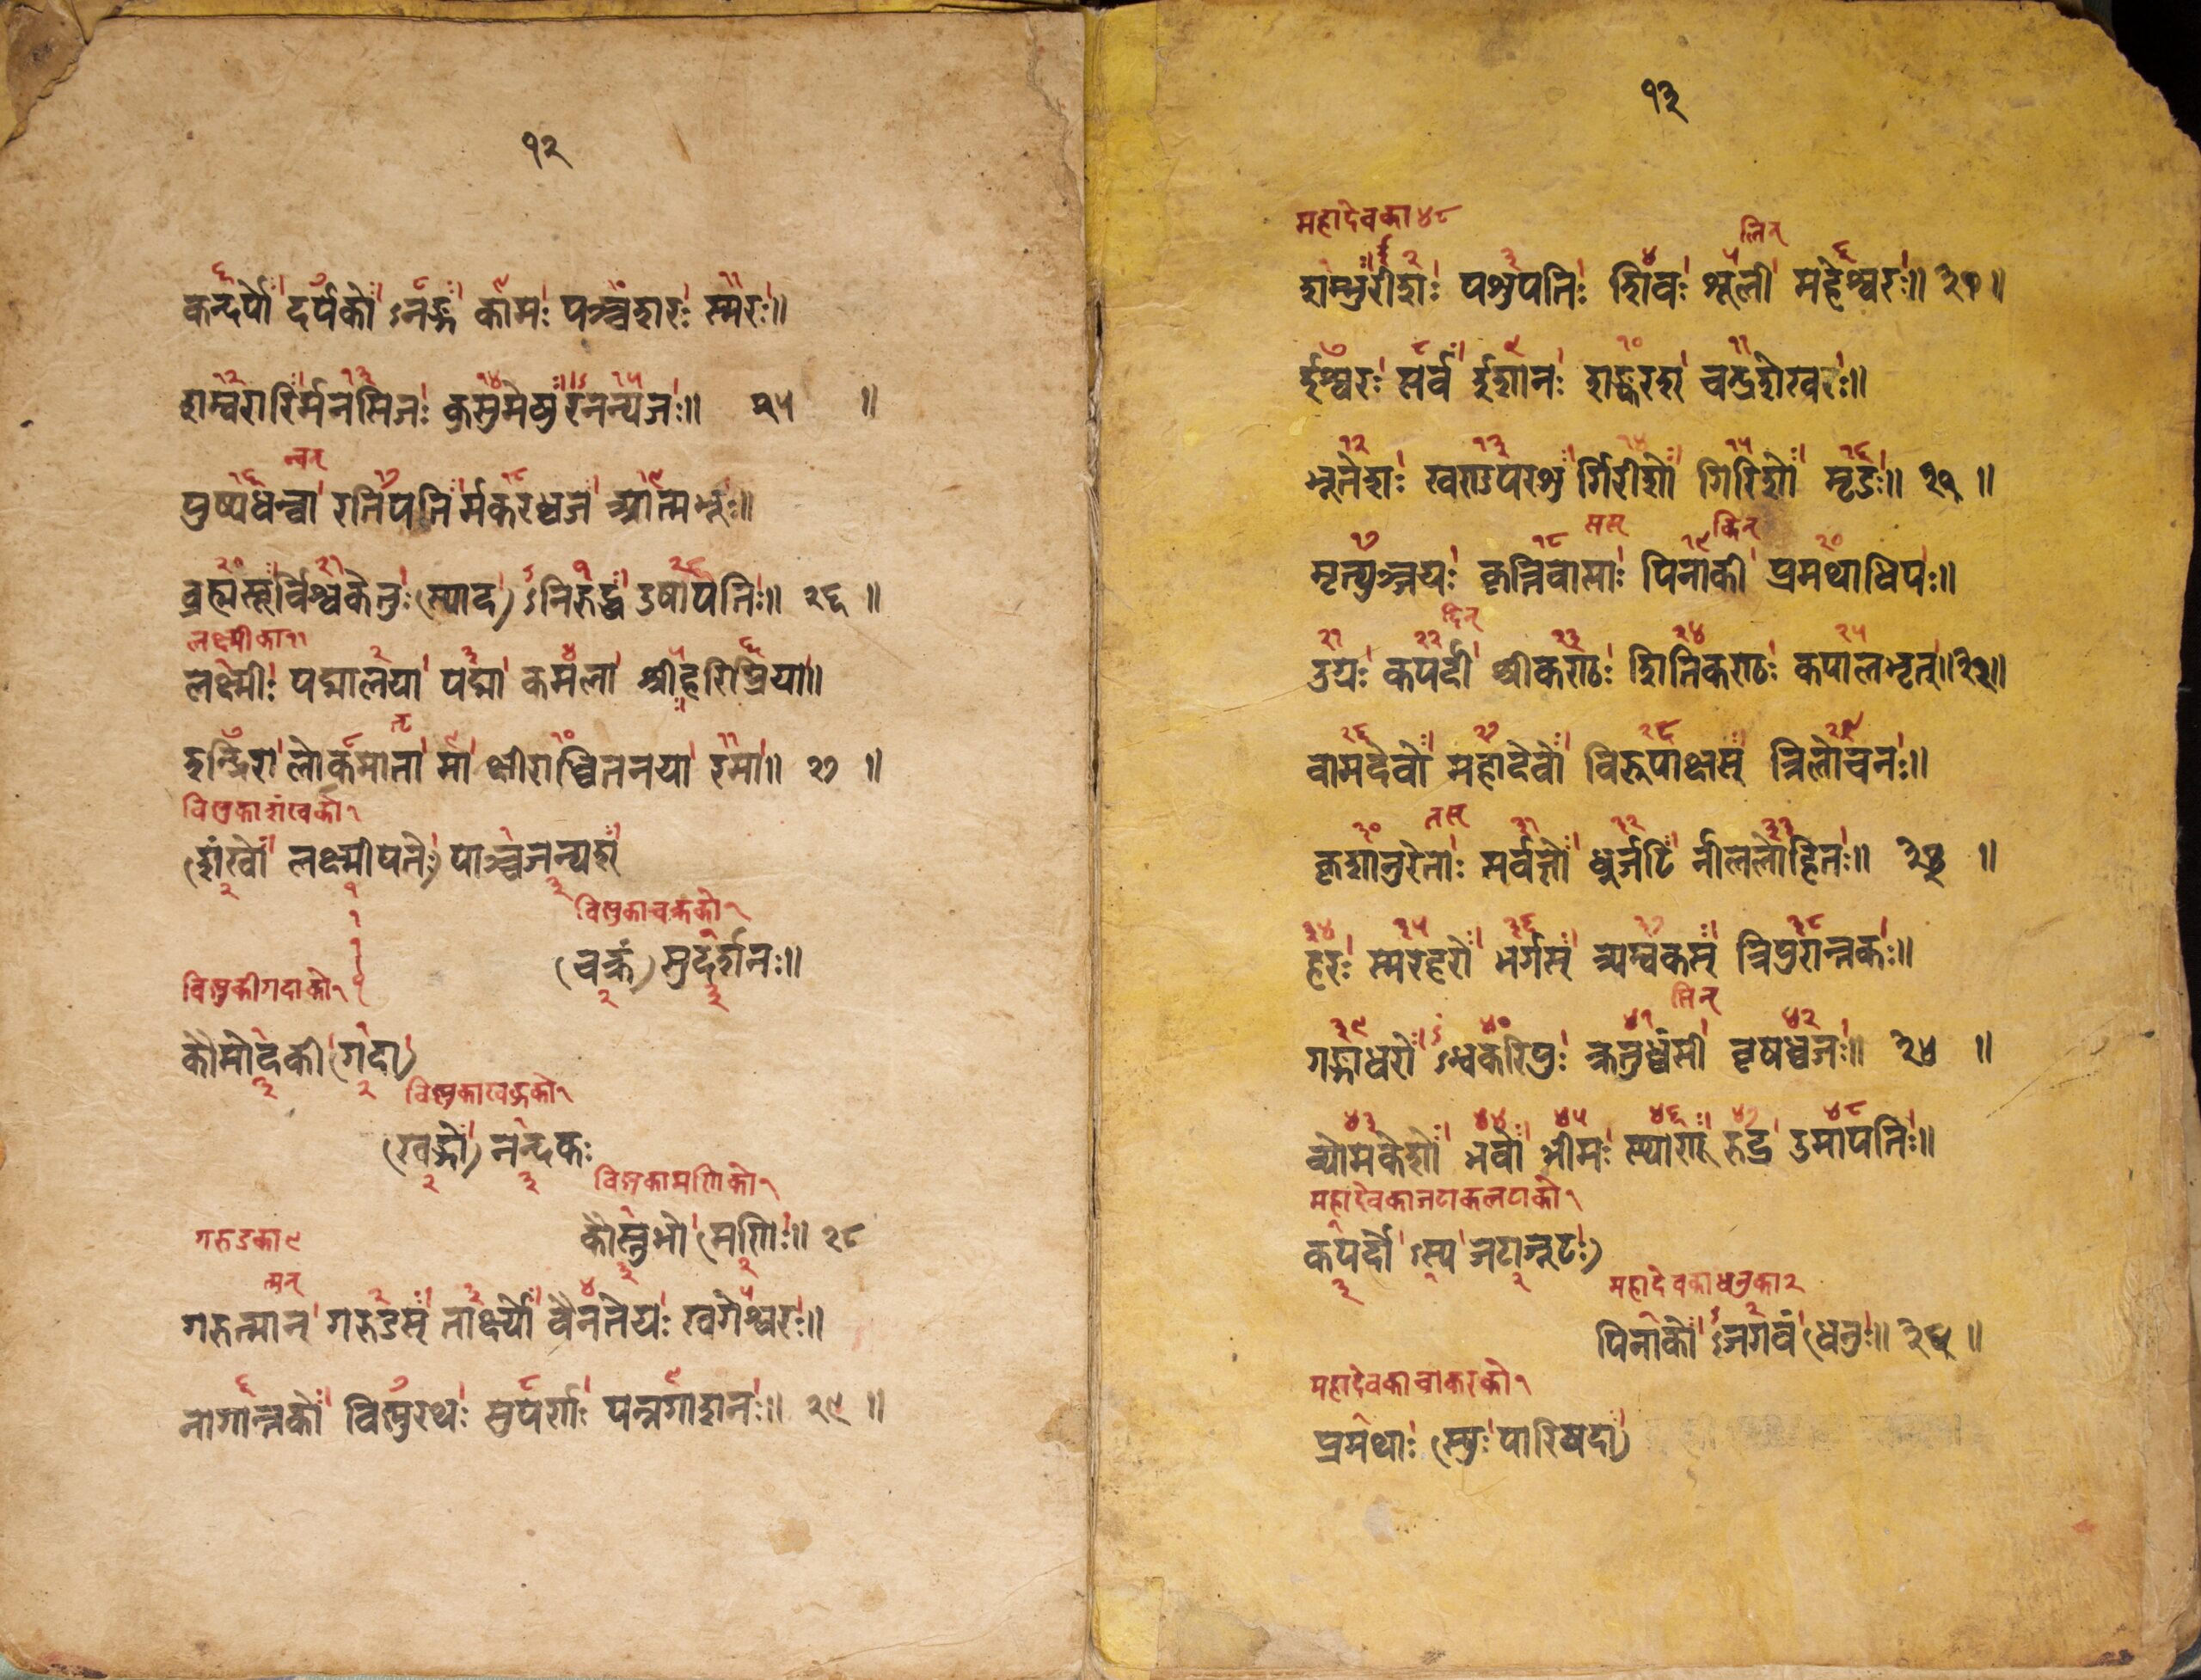 १२
कन्दर्पो दर्पको ऽनङ्गः कामः पञ्चशरः स्मरः॥
शम्बरारिर्मनसिजः कुसुमेषुरनन्यजः॥ २५ ॥
न्वन्
पुष्पधन्वा रतिपतिर्मकरध्वज आत्मभूः॥
ब्रह्मसूर्विश्वकेतुः (स्याद्) ऽनिरुद्ध उषापतिः॥ २६ ॥
लक्ष्मीका११
लक्ष्मीः पद्मालया पद्मा कमला श्रीहरिप्रिया॥
तृ
इन्दिरा लोकमाता मा क्षीराब्धितनया रमा॥ २७ ॥
विष्णुकाशंखको१
(शंखो लक्ष्मीपतेः) पाञ्चजन्यश्
विष्णुकाचक्रको१
(चक्रं) सुदर्शनः॥
विष्णुकीगदाको१
कौमोदकी (गदा)
विष्णुकाखड्गको१
(खड्गो) नन्दकः
विष्णुकामणिको१
कौस्तुभो (मणिः॥ २८
गरुडका९
त्मन्
गरुत्मान् गरुडस् तार्क्ष्यो वैनतेयः खगेश्वरः॥
नागान्तको विष्णुरथः सुपर्णः पन्नगाशनः॥ २९ ॥
१३
महादेवका४८
लिन्
शम्भुरीशः पशुपतिः शिवः शूली महेश्वरः॥ ३१॥
ईश्वरः सर्व ईशानः शङ्करश् चन्द्रशेखरः॥
भूतेशः खण्डपरशुर्गिरीशो गिरिशो मृडः॥ ३२ ॥
सस् किन्
मृत्युञ्जयः कृत्तिवासाः पिनाकी प्रमथाधिपः॥
र्दिन्
उग्रः कपर्दी श्रीकण्ठः शितिकण्ठः कपालभृत्॥३३॥
वामदेवो महादेवो विरूपाक्षस् त्रिलोचनः॥
तस्
कृशानुरेताः सर्वज्ञो धूर्जटिर्नीललोहितः॥ ३४ ॥
हरः स्मरहरो भर्गस् त्र्यम्बकस् त्रिपुरान्तकः॥
सिन्
गङ्गाधरो ऽन्धकरिपुः क्रतुध्वंसी वृषध्वजः॥ ३५ ॥
व्योमकेशो भवो भीमः स्थाणू रुद्र उमापतिः॥
महादेवकाजटाकलटाको१
कपर्दो ऽस्य जटाजूटः)
महादेवकाधनुका२
पिनाको ऽजगवं (धनुः॥ ३६ ॥
महादेवकाचाकरको१
प्रमथाः (स्युः पारिषदा)